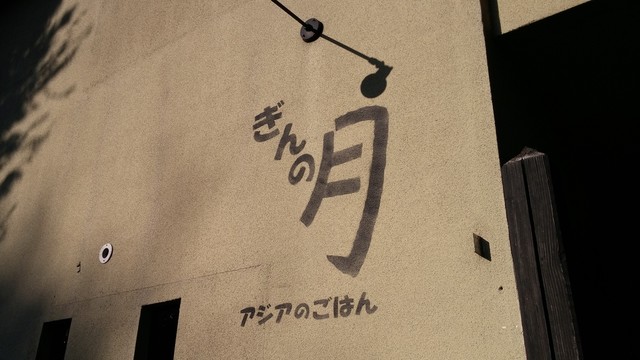 ぎんの月
アジアのごはん